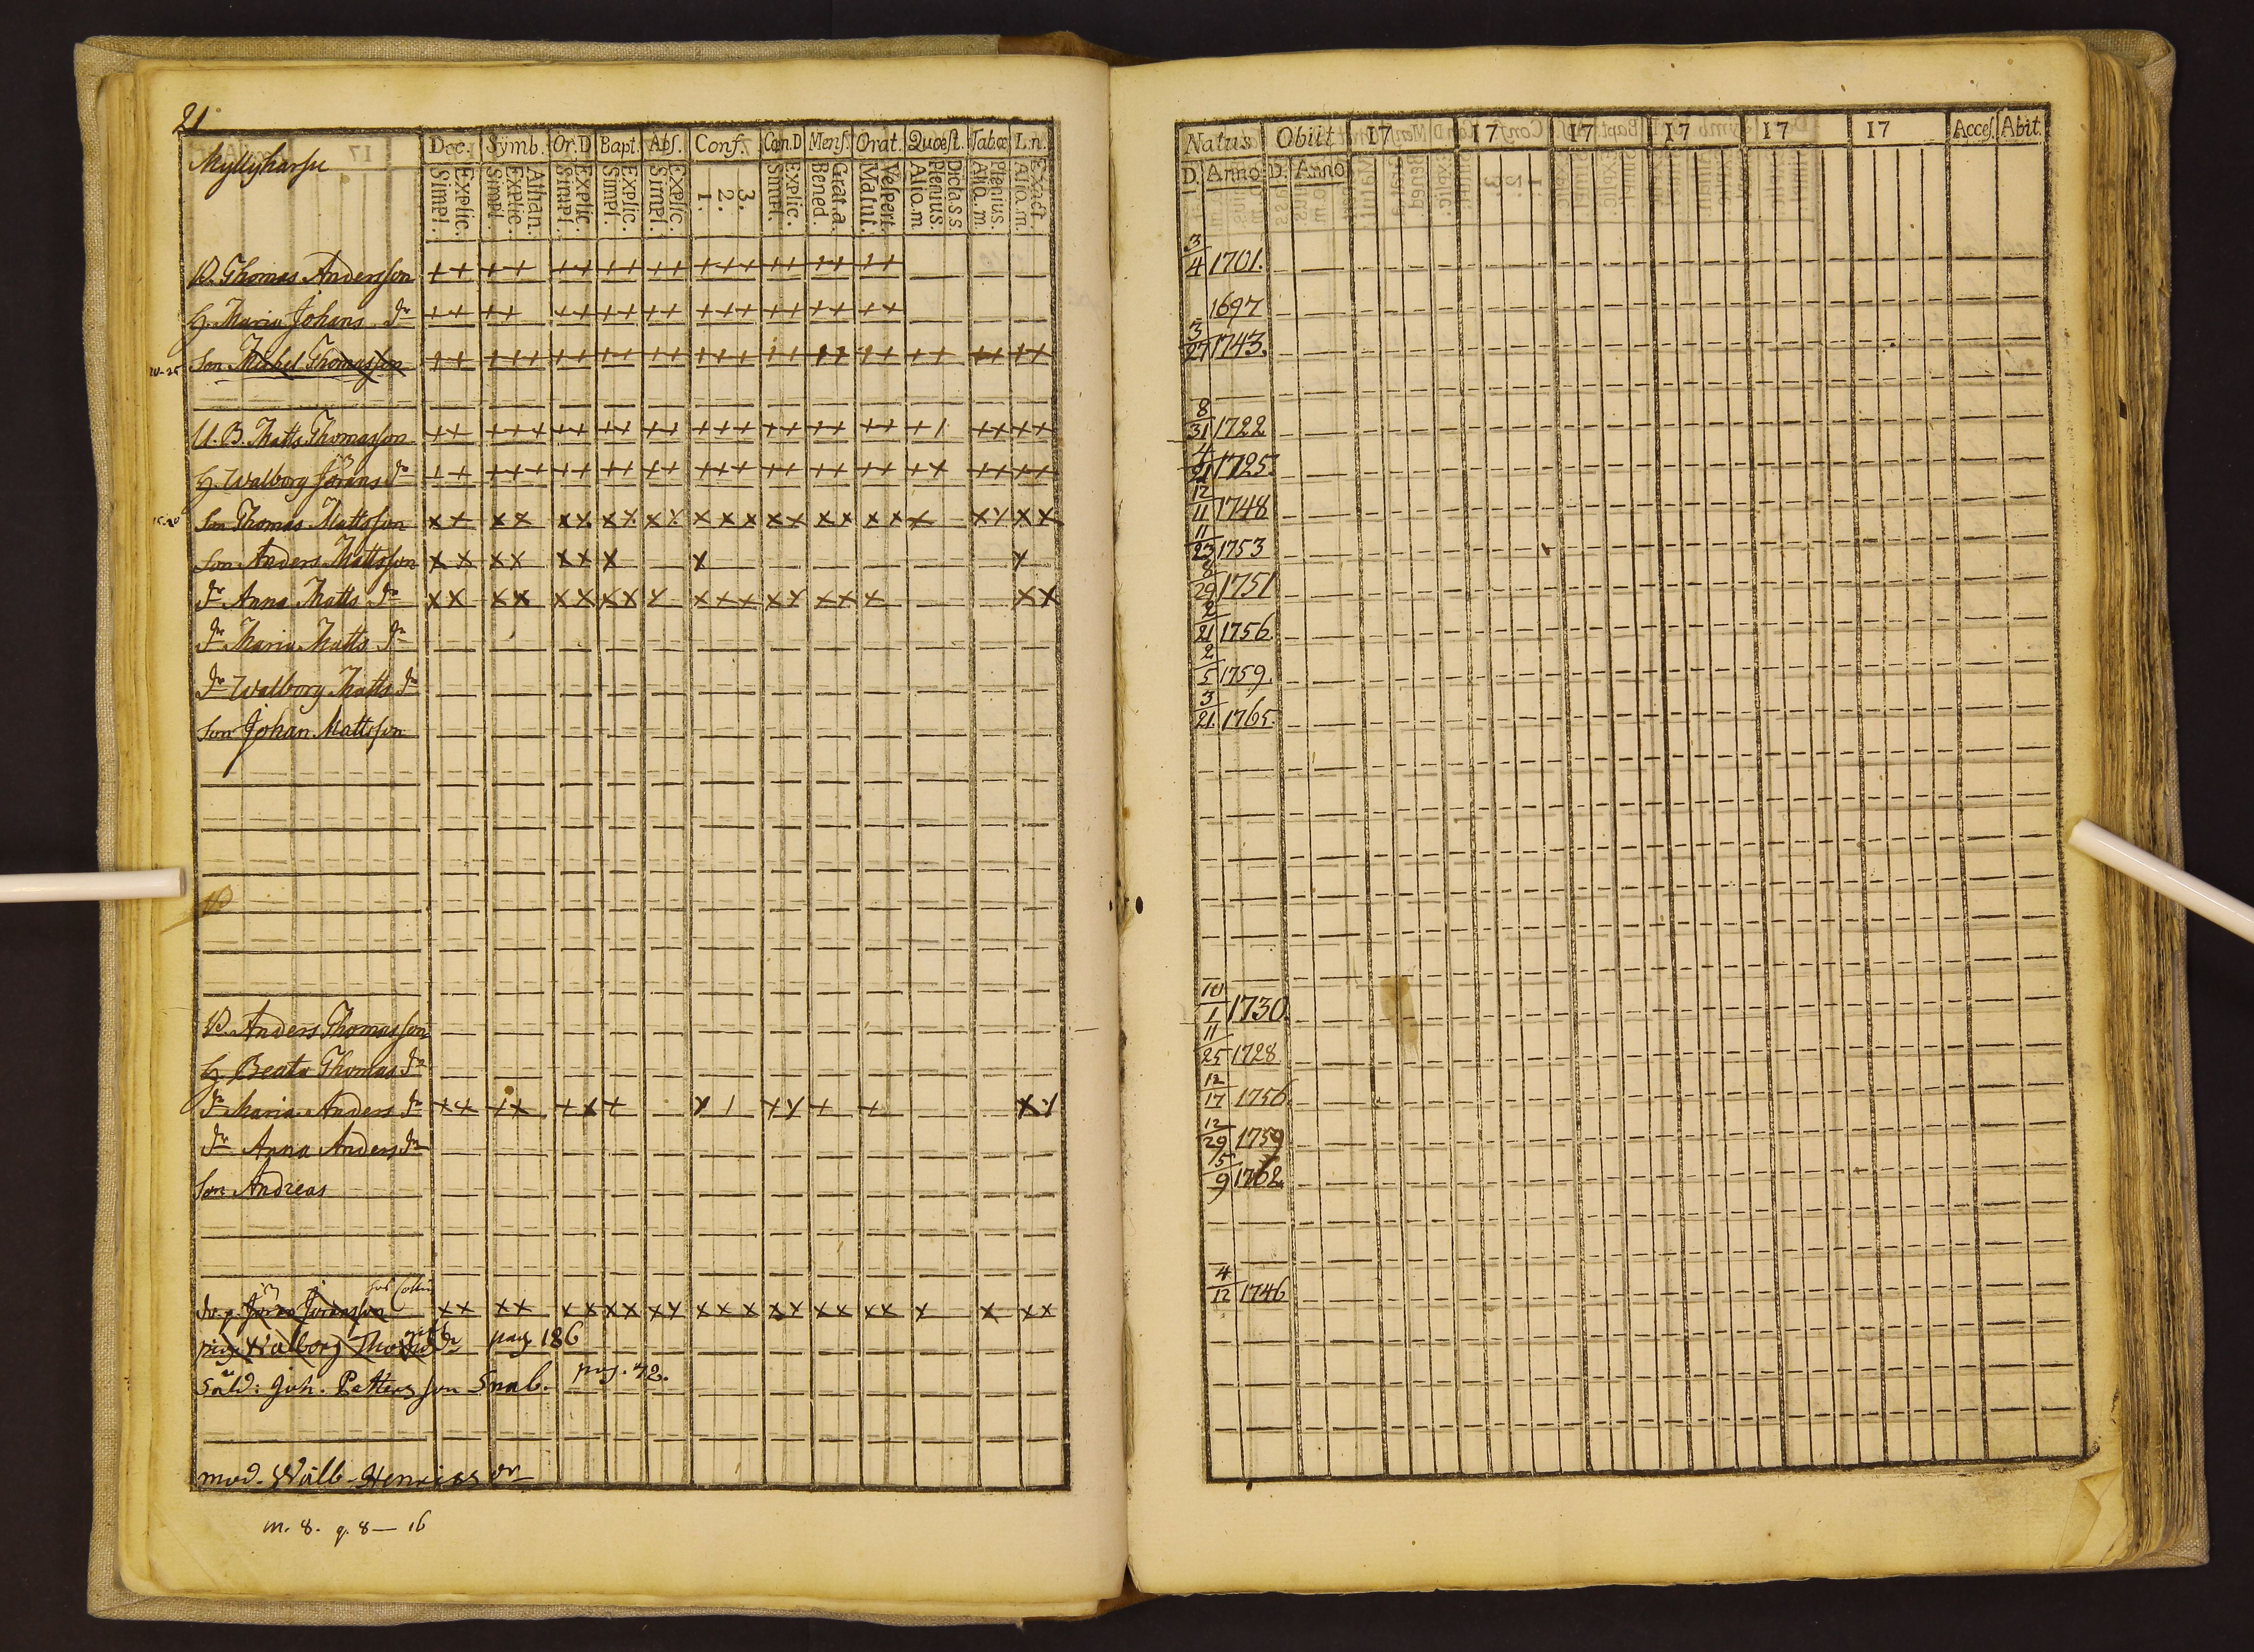 21.
Myllyharju
Dec. Symb. Or.D Bapt. Abs. Conf. Cœn.D Mens. Orat. Quæst. Tabœ L.n.
Simpl. Explic. Simpl. Explic. Athan. Simpl. Explic. Simpl. Explic. Simpl. Explic. 1. 2. 3. Simpl. Explic. Bened. Grat.a. Matut. Vespert. Alio.m Plenius. Dictass Alio.m Plenius. Alio.m. Exact.
Natus Obiit 17 17 17 17 17 17 Acces. Abit.
D. Anno D. Anno
B. Thomas Andersson 3/4 1701.
H. Maria Johans dr 1697
Son Michel Thomasson 3/27 1743.
U. B. Matts Thomasson 8/31 1722
H. Walborg Jörans dr 4/21 1725.
Son Thomas Mattsson 12/11 1748
Son Anders Mattsson 11/23 1753
dr Anna Matts dr 8/29 1751
dr Maria Matts dr 2/21 1756.
dr Walborg Matts dr 2/5 1759.
Son Johan Mattsson 3/21. 1765.
B. Anders Thomasson 10/1 1730.
H. Beata Thomas dr 11/25 1728.
dr Maria Anders dr 12/17 1756.
dr Anna Anders dr 12/29 1759
Son Andreas 5/9 1762.
dr. p. Jöran Göransson 4/12 1746
pig. Walborg Thom dr pag 186
Sold: Joh. Pettersson Snab. pag. 42.
mod. Walb. Henrics dr
m. 8. q. 8 — 16